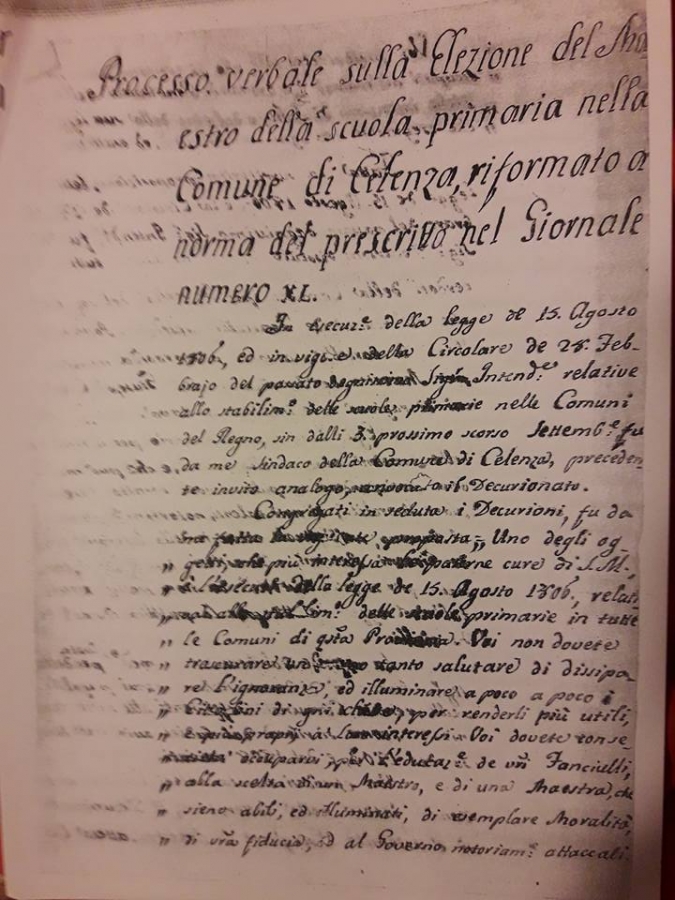 Processo verbale sulla Elezione del Ma
estro della scuola primaria nella
Comune di Celenza, riformato a
norma del prescritto nel Giornale
NUMERO XL.
In esecuz.e della legge de 15. Agosto
1806, ed in vig.e della Circolare de 28. Feb-
brajo del passato Intend.e relative
allo stabilim.o delle scuole primarie nelle Comuni
del Regno, sin dalli 3. prossimo scorso Settemb.e fu
da me Sindaco della Comune di Celenza, preceden
te invito analogo, il Decurionato.
Congregati in seduta i Decurioni, fu da
me fatta la seguente proposta = Uno degli og-
" getti, che più interessa le paterne cure di S.M.,
" è l'esecuz.e della legge de 15. Agosto 1806, relati
" va allo stabilim.o delle scuole primarie in tutte
" le Comuni di q.sta Provincia. Voi non dovete
" trascurare tanto salutare di dissipa-
" re l'ignoranza, ed illuminare a poco a poco i
" Cittadini di ogni per renderli più utili,
" interessi. Voi dovete
" occuparvi per l'educaz.e de v.ri Fanciulli,
" alla scelta di un Maestro, e di una Maestra, che
" sieno abili, ed illuminati, di esemplare Moralità,
" di v.ra fiducia, ed al Governo notoriam.e attaccati.